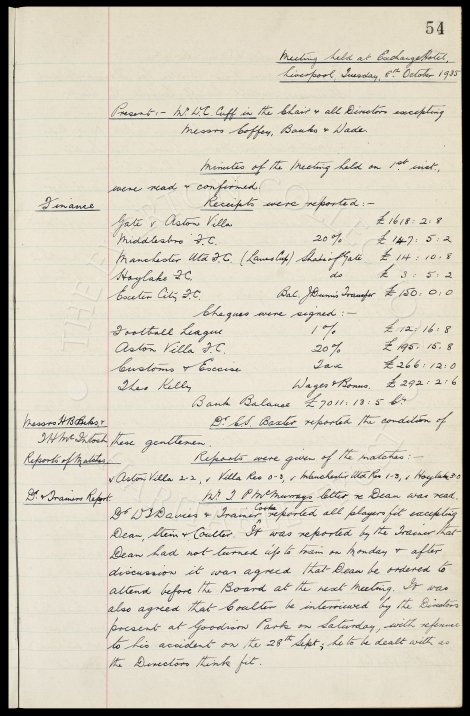 54
Meeting held at Exchange Hotel,
Liverpool, Tuesday, 8th October 1935
Present:- Mr W.C. Cuff in the Chair & all Directors excepting
Messrs Coffey, Banks & Wade.
Minutes of the Meeting held on 1st inst.
were read & confirmed.
Finance
Receipts were reported:-
Gate v Aston Villa £1618: 2: 8
Middlesbro F.C. 20% £147: 5: 2
Manchester Utd F.C. (Lancs Cup) Share of Gate £14: 10: 8
Hoylake F.C. do £3: 5: 2
Exeter City F.C. Bal. J Dunn's Transfer £150: 0: 0
Cheques were signed:-
Football League 1% £12: 16: 8
Aston Villa F.C. 20% £195: 15: 8
Customs & Excise Tax £266: 12: 0
Theo Kelly Wages & Bonus. £292: 2: 6
Bank Balance £7011: 13: 5 Cr
Messrs H Banks &
J H McIntosh
Dr. C.S. Baxter reported the condition of
these gentlemen.
Reports of Matches
Reports were given of the matches:-
v Aston Villa 2-2, v Villa Res 0-3, v Manchester Utd Res 1-3, v Hoylake 3-0
Dr & Trainers Report
Mr. T P McMurray's letter re Dean was read.
Dr W J Davies & Trainer Cooke reported all players fit excepting
Dean, Stein & Coulter. It was reported by the Trainer that
Dean had not turned up to train on Monday & after
discussion it was agreed that Dean be ordered to
attend before the Board at the next Meeting. It was
also agreed that Coulter be interviewed by the Directors
present at Goodison Park on Saturday, with reference
to his accident on the 28th Sept, he to be dealt with as
the Directors think fit.